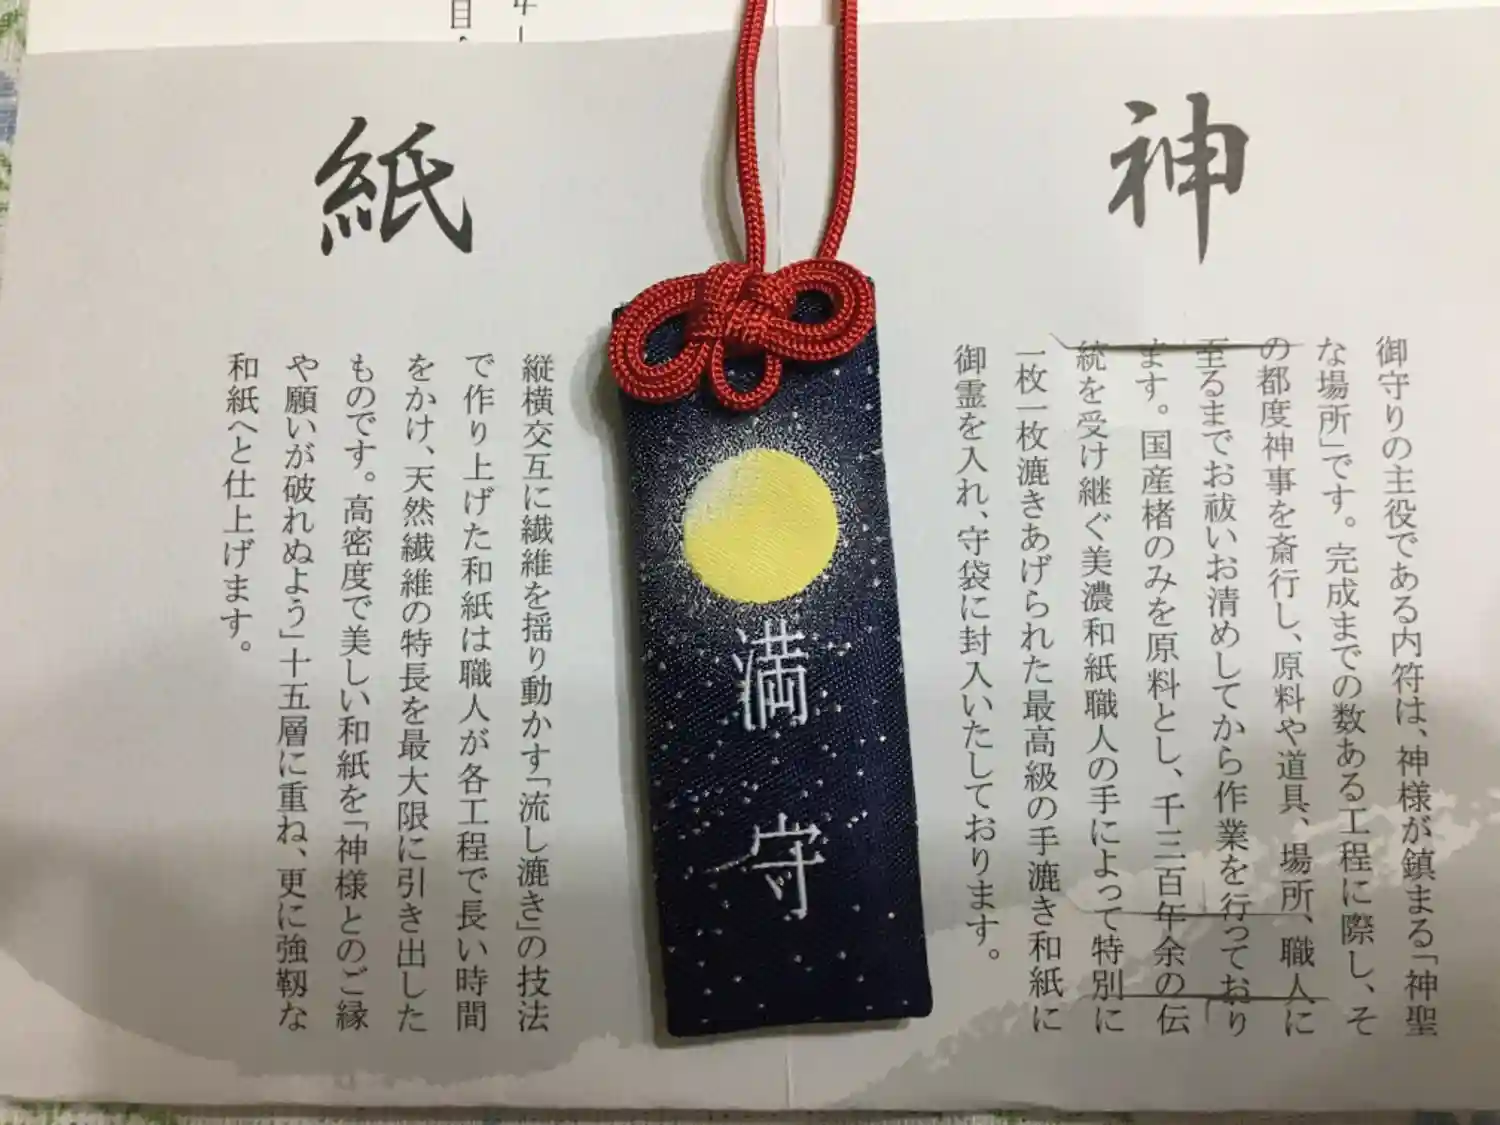 神
御守りの主役である内符は、神様が鎮まる「神聖
な場所」です。完成までの数ある工程に際し、そ
の都度神事を斎行し、原料や道具、場所、職人に
至るまでお祓いお清めしてから作業を行っており
ます。国産楮のみを原料とし、千三百年余の伝
統を受け継ぐ美濃和紙職人の手によって特別に
一枚一枚漉きあげられた最高級の手漉き和紙に
御霊を入れ、守袋に封入いたしております。
満
守
紙
縦横交互に繊維を揺り動かす「流し漉き」の技法
で作り上げた和紙は職人が各工程で長い時間
をかけ、天然繊維の特長を最大限に引き出した
ものです。高密度で美しい和紙を「神様とのご縁
や願いが破れぬよう」十五層に重ね、更に強靱な
和紙へと仕上げます。